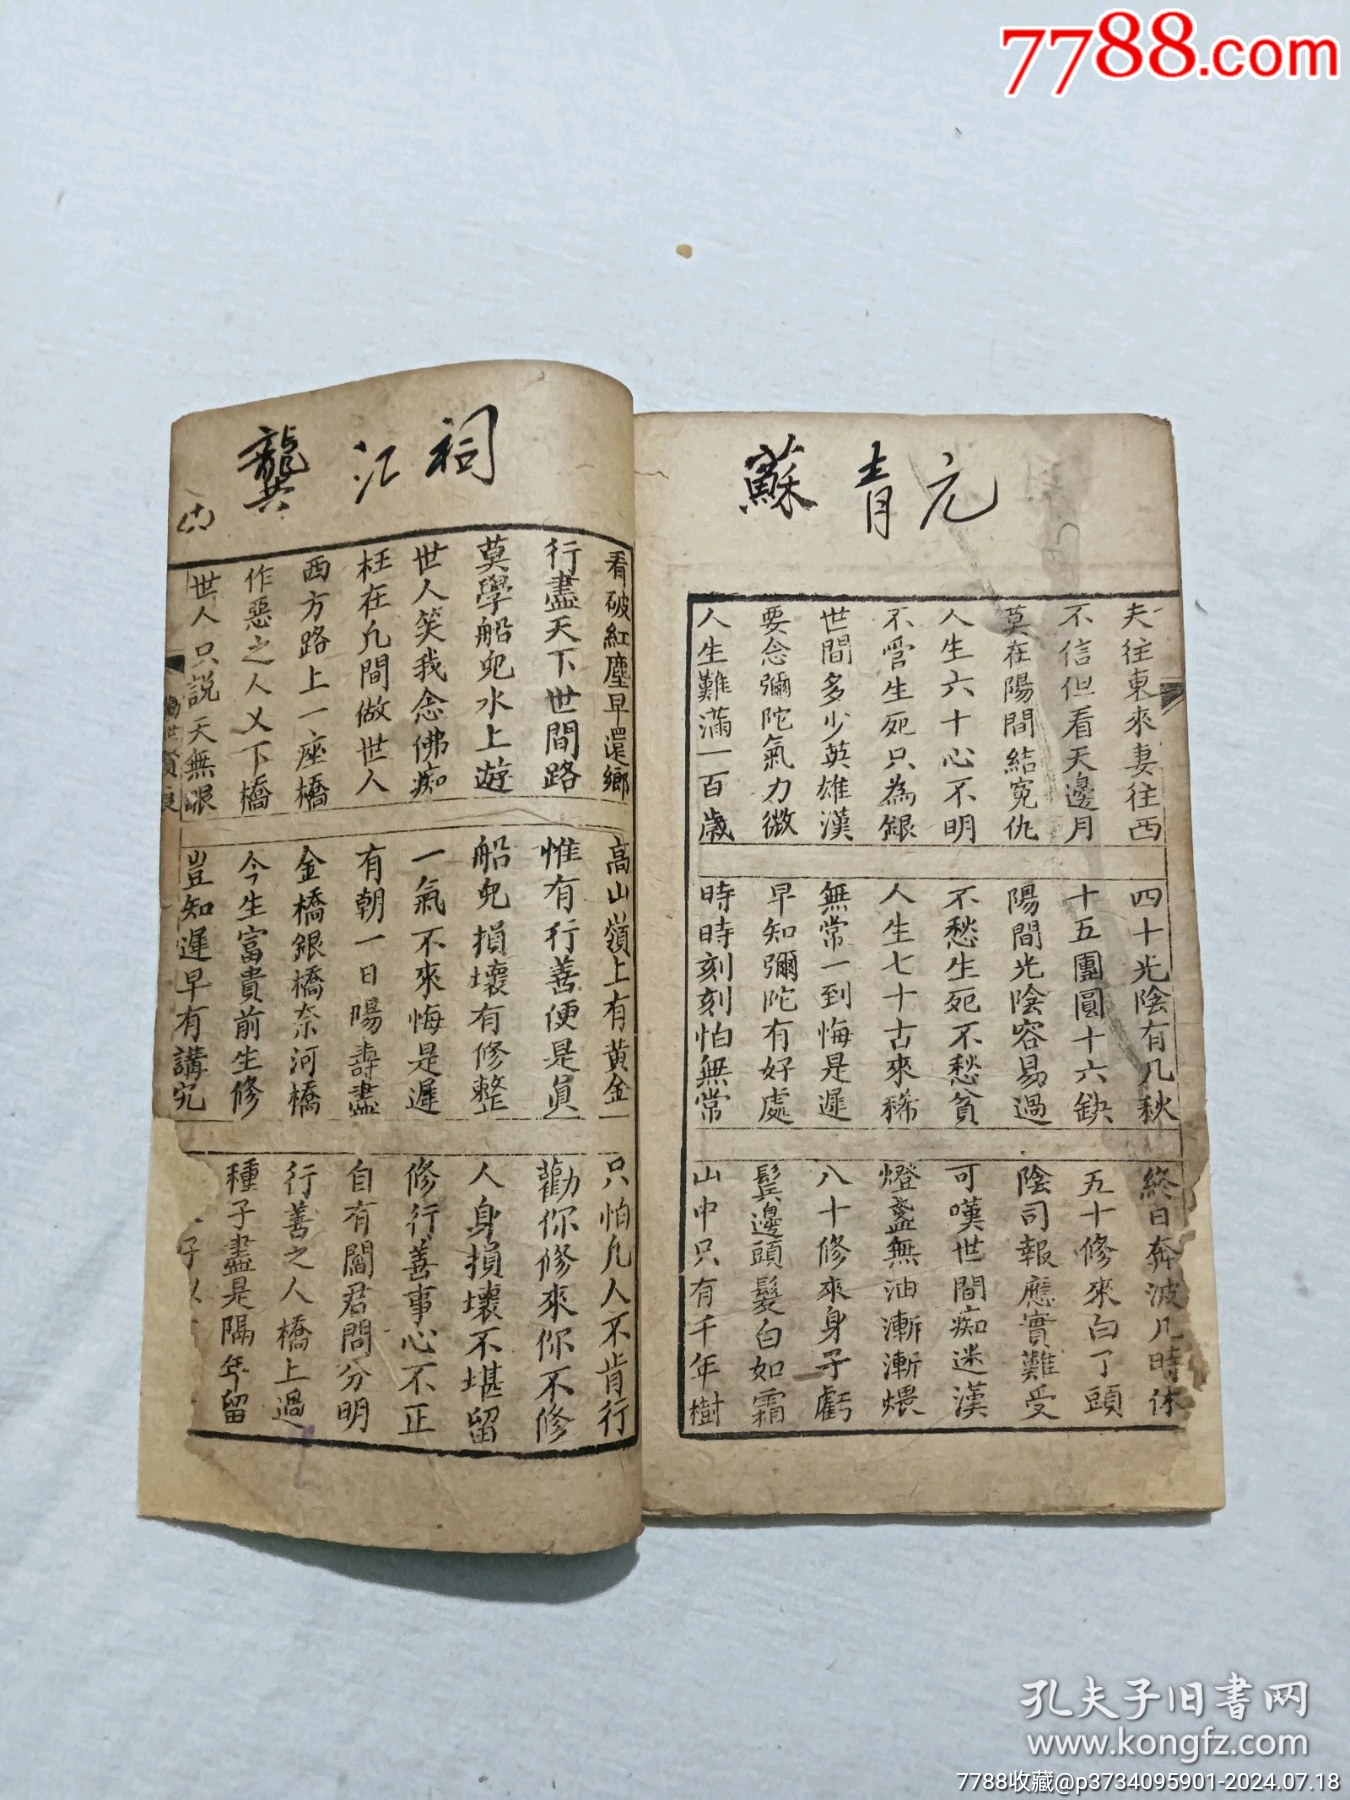 7788.com
蘇青元
夫往東來妻往西 四十光陰有几秋 終日奔波几時休
不信但看天邊月 十五團圓十六缺 五十修來白了頭
莫在陽間結冤仇 陽間光陰容易過 陰司報應實難受
人生六十心不明 不愁生死不愁貧 可嘆世間痴迷漢
不管生死只為銀 人生七十古來稀 燈盞無油漸漸煨
世間多少英雄漢 無常一到悔是遲 八十修來身子虧
要念彌陀氣力微 早知彌陀有好處 鬂邊頭髮白如霜
人生難滿一百歲 時時刻刻怕無常 山中只有千年樹
龔江祠
看破紅塵早還鄉 高山嶺上有黃金 只怕凡人不肯行
行盡天下世間路 惟有行善便是眞 勸你修來你不修
莫學船兒水上遊 船兒損壞有修整 人身損壞不堪留
世人笑我念佛痴 一氣不來悔是遲 修行善事心不正
枉在凡間做世人 有朝一日陽壽盡 自有閻君問分明
西方路上一座橋 金橋銀橋奈河橋 行善之人橋上過
作惡之人乂下橋 今生富貴前生修 種子盡是隔年留
世人只說天無眼 豈知遲早有講究 子
世賢良
孔夫子旧書网
www.kongfz.com
7788收藏@p3734095901-2024.07.18